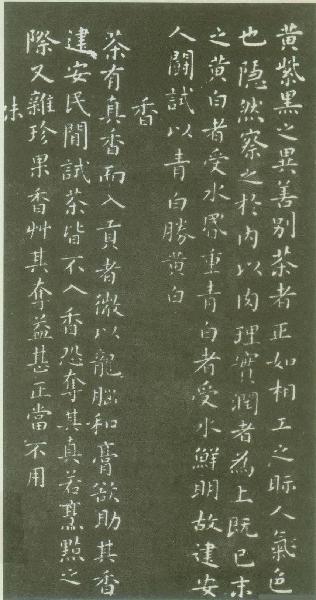 黄紫黑之異善别茶者正如相工之眎人氣色
也隱然察之於内以肉理實潤者為上既已末
之黄白者受水昬重青白者受水鮮明故建安
人鬭試以青白勝黄白
香
茶有真香而入貢者微以龍腦和膏欲助其香
建安民間試茶皆不入香恐奪其真若烹點之
際又雜珍果香艸其奪益甚正當不用
味